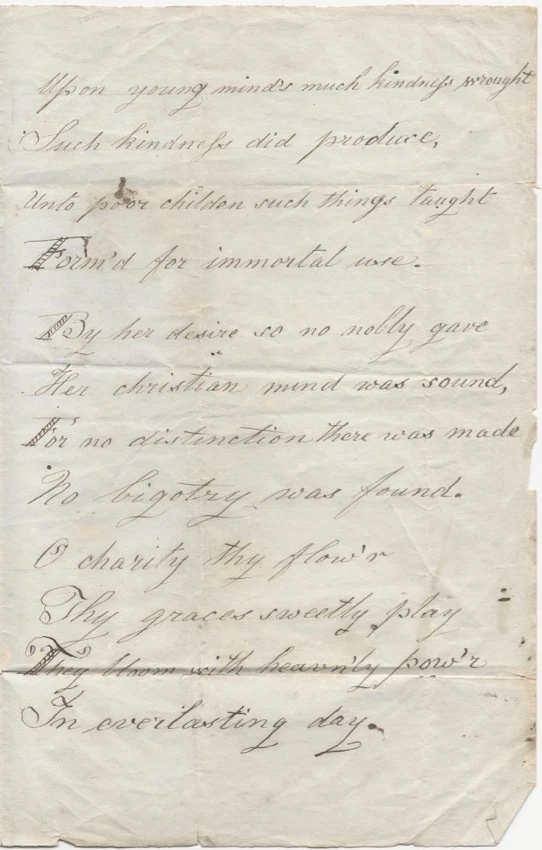 Upon young minds much kindness wrought
Such kindness did produce,
Unto poor childen such things taught
Form'd for immortal use.
By her desire so no nobly gave
Her christian mind was sound,
For no distinction there was made
No bigotry was found.
O charity thy flow'r
Thy graces sweetly play
They bloom with heav'nly pow'r
In everlasting day.